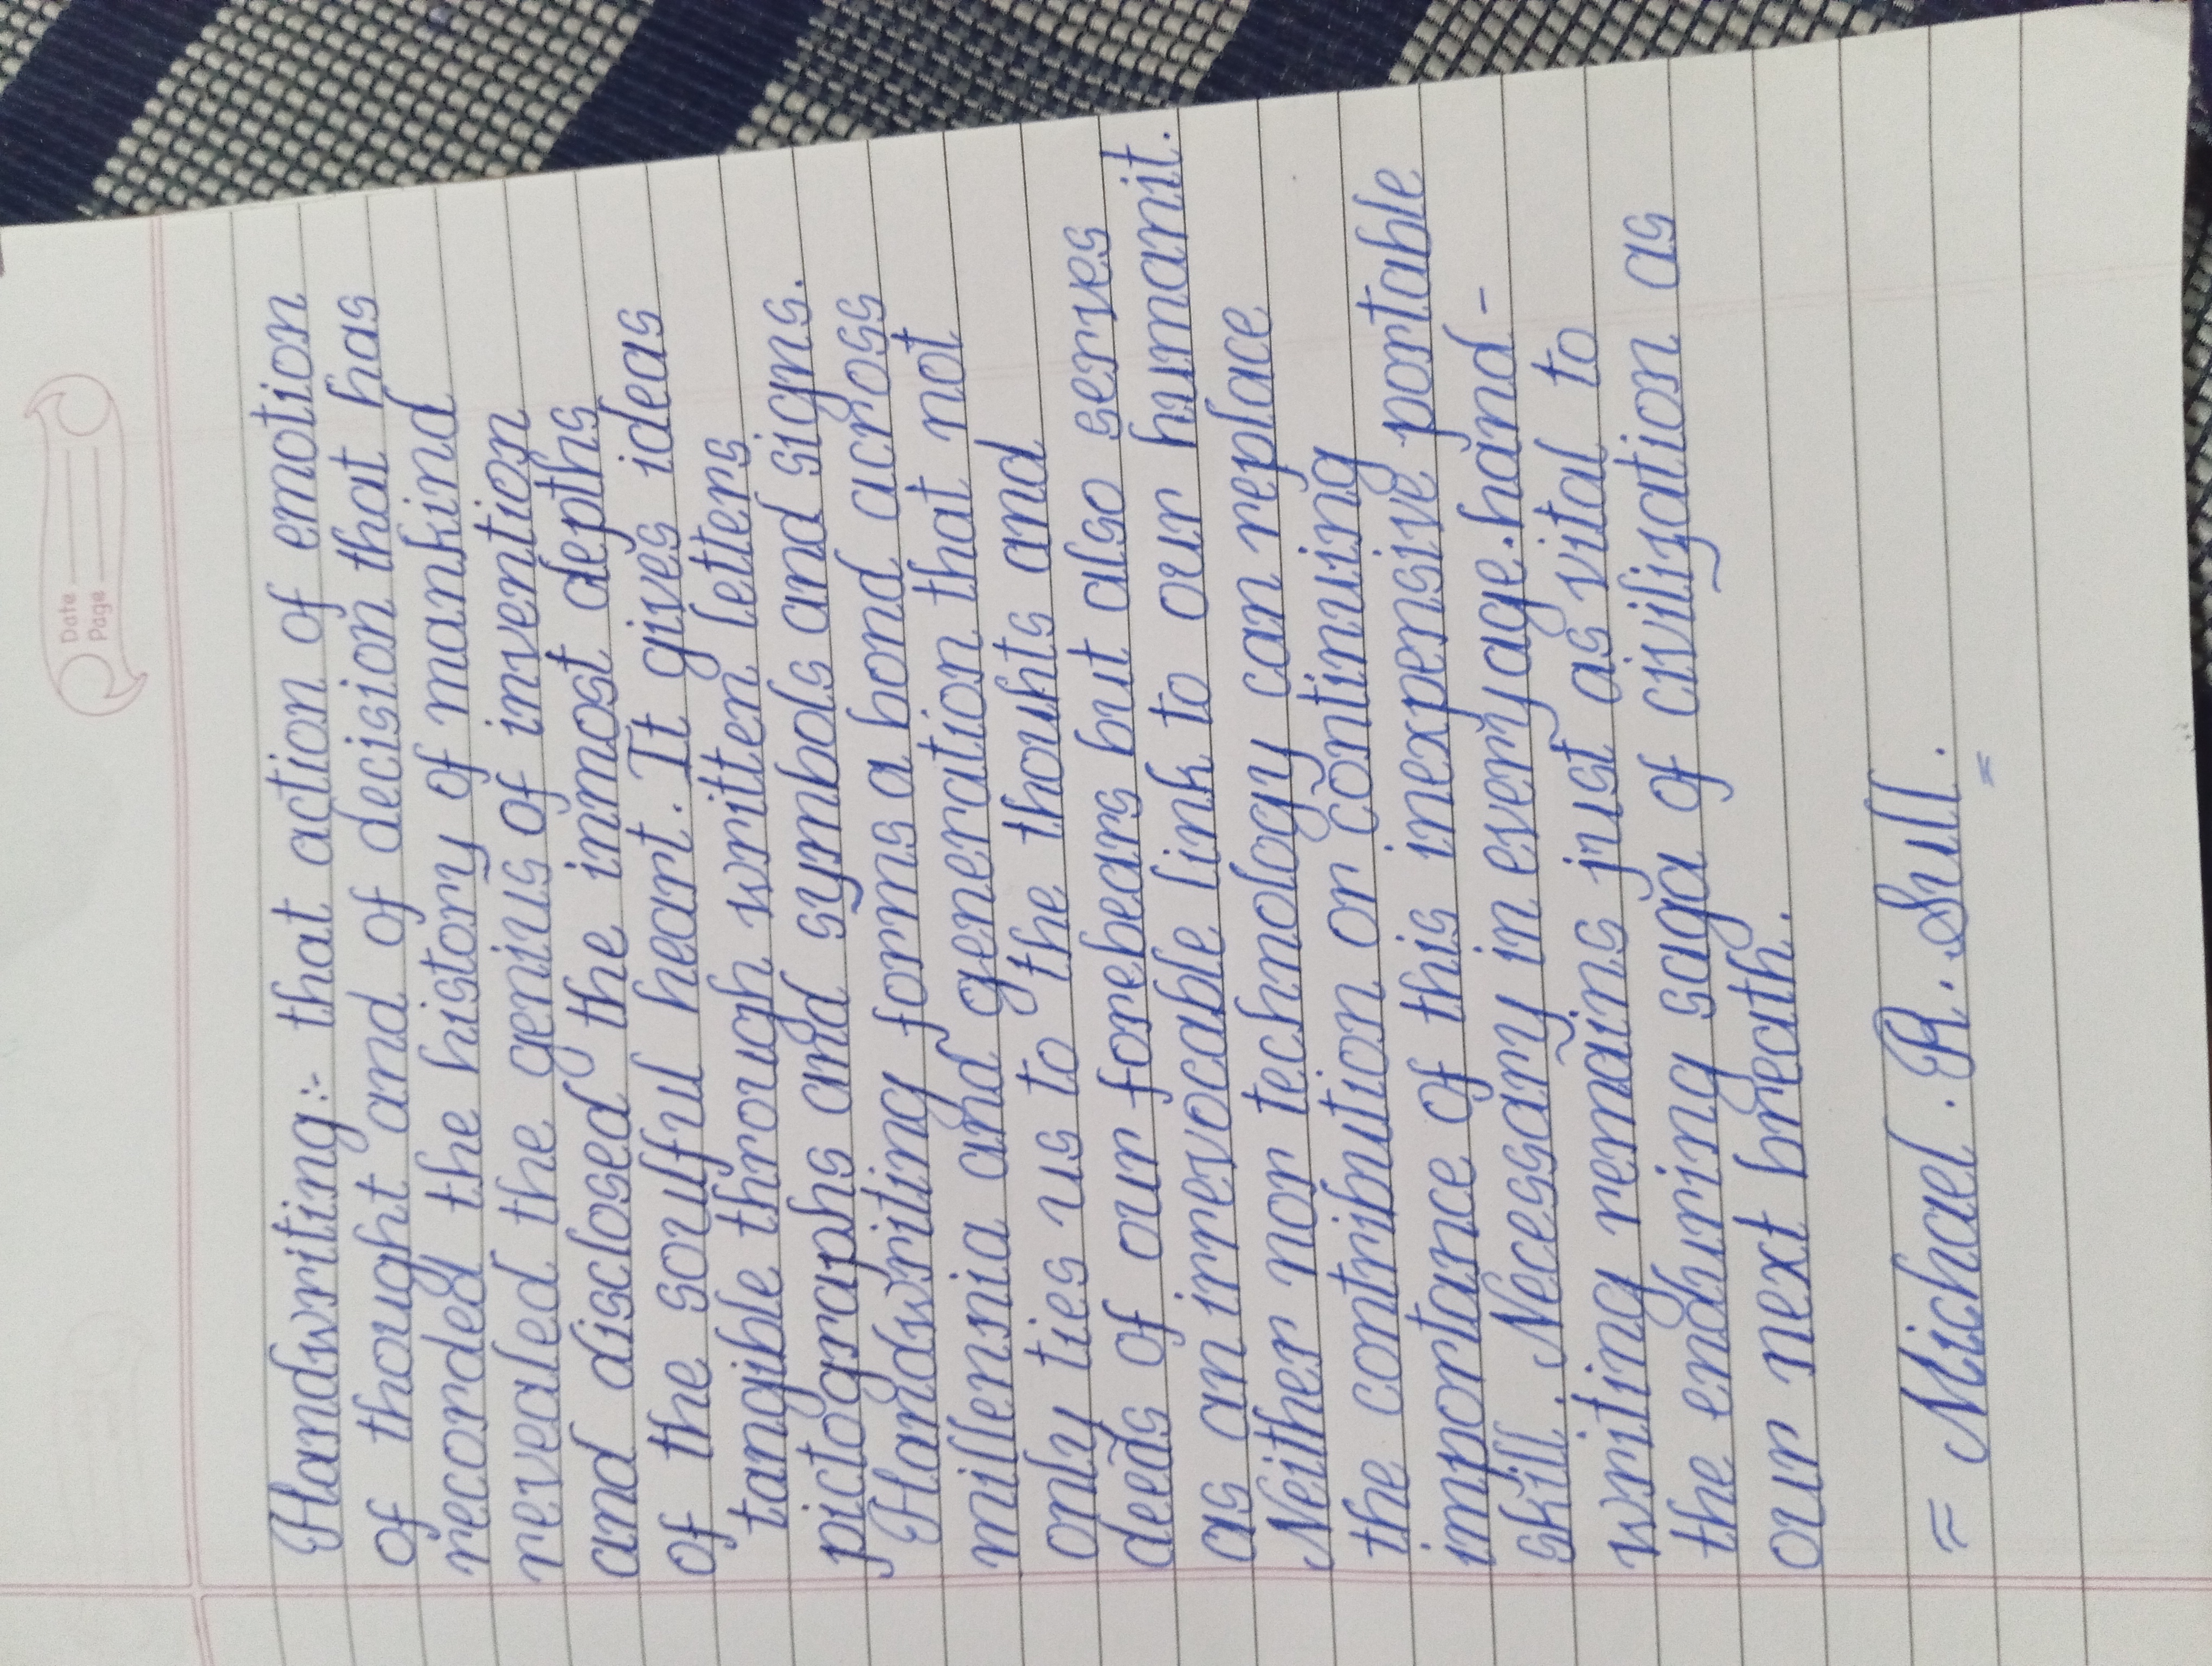 Date
Page
Handwriting:- that action of emotion
of thought and of decision that has
recorded the history of mankind
revealed the genius of invention
and disclosed the inmost depths
of the soulful heart. It gives ideas
tangible through written letters
pictographs and symbols and signs.
Handwriting forms a bond across
millennia and generation that not
only ties us to the thouhts and
deeds of our forebears but also serves
as an irrevocable link to our humanit.
Neither nor technology can replace
the contribution or continuing
importance of this inexpensive portable
skill. Necessary in every age.hand-
writing remains just as vital to
the enduring saga of civilization as
our next breath.
= Michael . R. Sull.